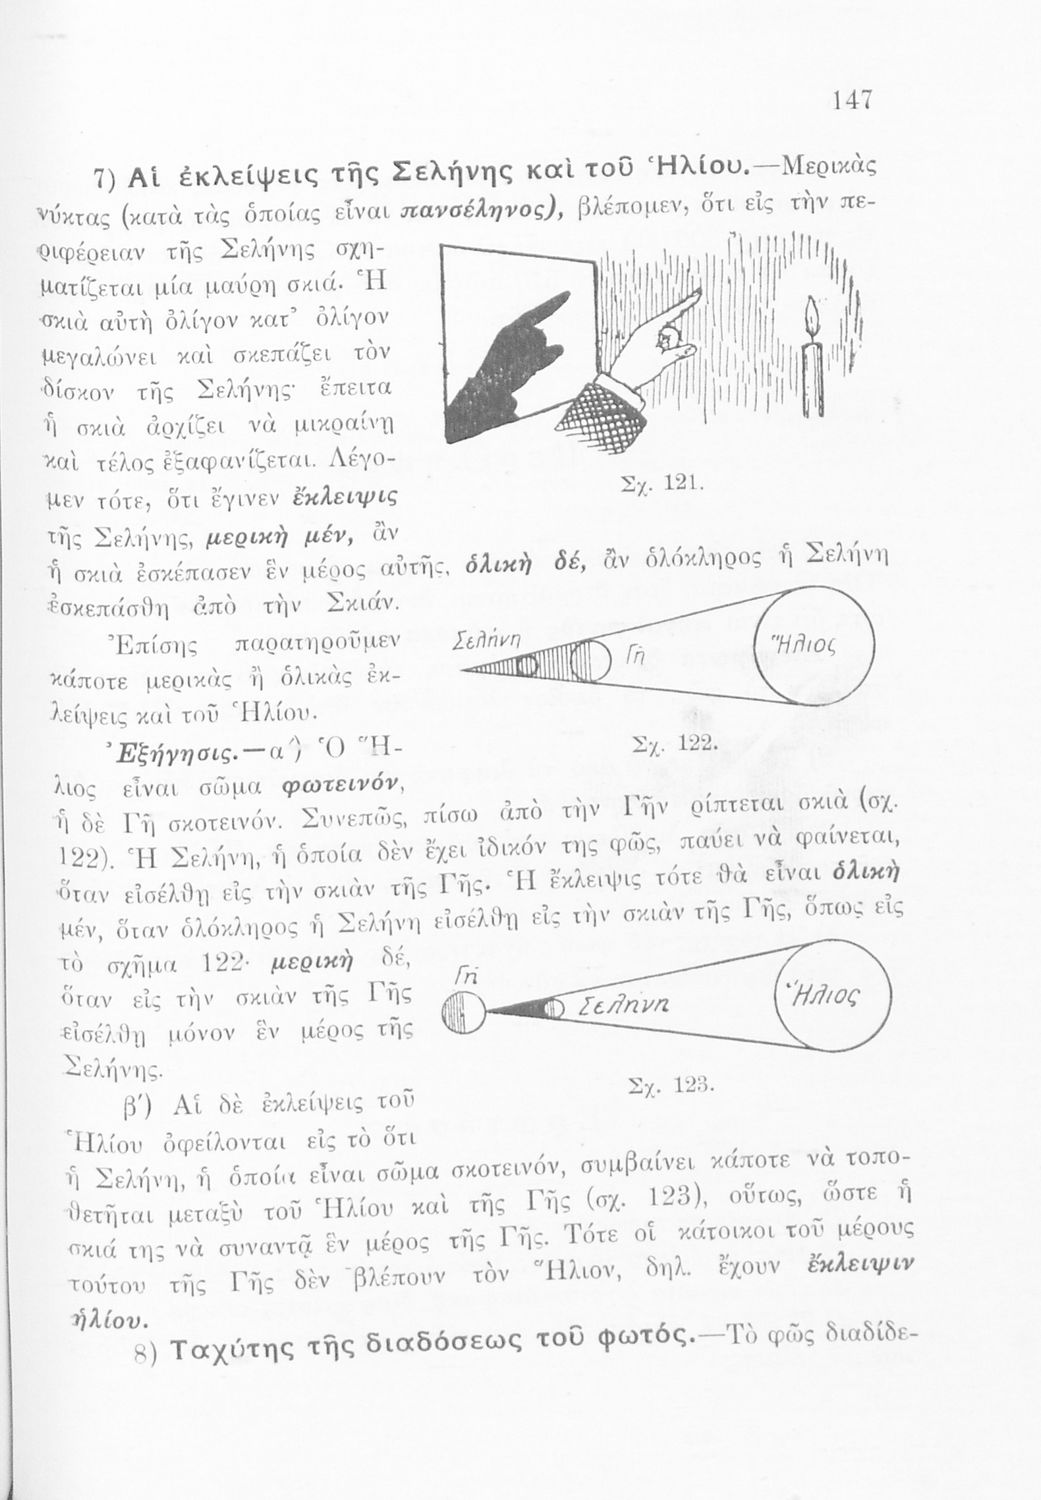 147
7) Αἱ ἐκλείψεις τῆς Σελήνης καὶ τοῦ Ἡλίου.—Μερικὰς
νύκτας (κατὰ τὰς ὁποίας εἶναι πανσέληνος), βλέπομεν, ὅτι εἰς τὴν πε-
ριφέρειαν τῆς Σελήνης σχη-
ματίζεται μία μαύρη σκιά. Ἡ
σκιὰ αὐτὴ ὀλίγον κατ᾽ ὀλίγον
μεγαλώνει καὶ σκεπάζει τὸν
δίσκον τῆς Σελήνης· ἔπειτα
ἡ σκιὰ ἀρχίζει νὰ μικραίνῃ
καὶ τέλος ἐξαφανίζεται. Λέγο-
μεν τότε, ὅτι ἔγινεν ἔκλειψις
τῆς Σελήνης, μερικὴ μέν, ἂν
Σχ. 121.
ἡ σκιὰ ἐσκέπασεν ἓν μέρος αὐτῆς, ὁλικὴ δέ, ἂν ὁλόκληρος ἡ Σελήνη
ἐσκεπάσθη ἀπὸ τὴν Σκιάν.
Ἐπίσης παρατηροῦμεν
κάποτε μερικὰς ἢ ὁλικὰς ἐκ-
λείψεις καὶ τοῦ Ἡλίου.
Σελήνη Γῆ Ἥλιος
Σχ. 122.
Ἐξήγησις.—α΄) Ὁ Ἥ-
λιος εἶναι σῶμα φωτεινόν,
ἡ δὲ Γῆ σκοτεινόν. Συνεπῶς, πίσω ἀπὸ τὴν Γῆν ρίπτεται σκιὰ (σχ.
122). Ἡ Σελήνη, ἡ ὁποία δὲν ἔχει ἰδικόν της φῶς, παύει νὰ φαίνεται,
ὅταν εἰσέλθῃ εἰς τὴν σκιὰν τῆς Γῆς. Ἡ ἔκλειψις τότε θὰ εἶναι ὁλικὴ
μέν, ὅταν ὁλόκληρος ἡ Σελήνη εἰσέλθῃ εἰς τὴν σκιὰν τῆς Γῆς, ὅπως εἰς
τὸ σχῆμα 122· μερικὴ δέ,
ὅταν εἰς τὴν σκιὰν τῆς Γῆς
εἰσέλθῃ μόνον ἓν μέρος τῆς
Σελήνης.
Γῆ Σελήνη Ἥλιος
Σχ. 123.
β΄) Αἱ δὲ ἐκλείψεις τοῦ
Ἡλίου ὀφείλονται εἰς τὸ ὅτι
ἡ Σελήνη, ἡ ὁποία εἶναι σῶμα σκοτεινόν, συμβαίνει κάποτε νὰ τοπο-
θετῆται μεταξὺ τοῦ Ἡλίου καὶ τῆς Γῆς (σχ. 123), οὕτως, ὥστε ἡ
σκιά της νὰ συναντᾷ ἓν μέρος τῆς Γῆς. Τότε οἱ κάτοικοι τοῦ μέρους
τούτου τῆς Γῆς δὲν βλέπουν τὸν Ἥλιον, δηλ. ἔχουν ἔκλειψιν
ἡλίου.
8) Ταχύτης τῆς διαδόσεως τοῦ φωτός.—Τὸ φῶς διαδίδε-